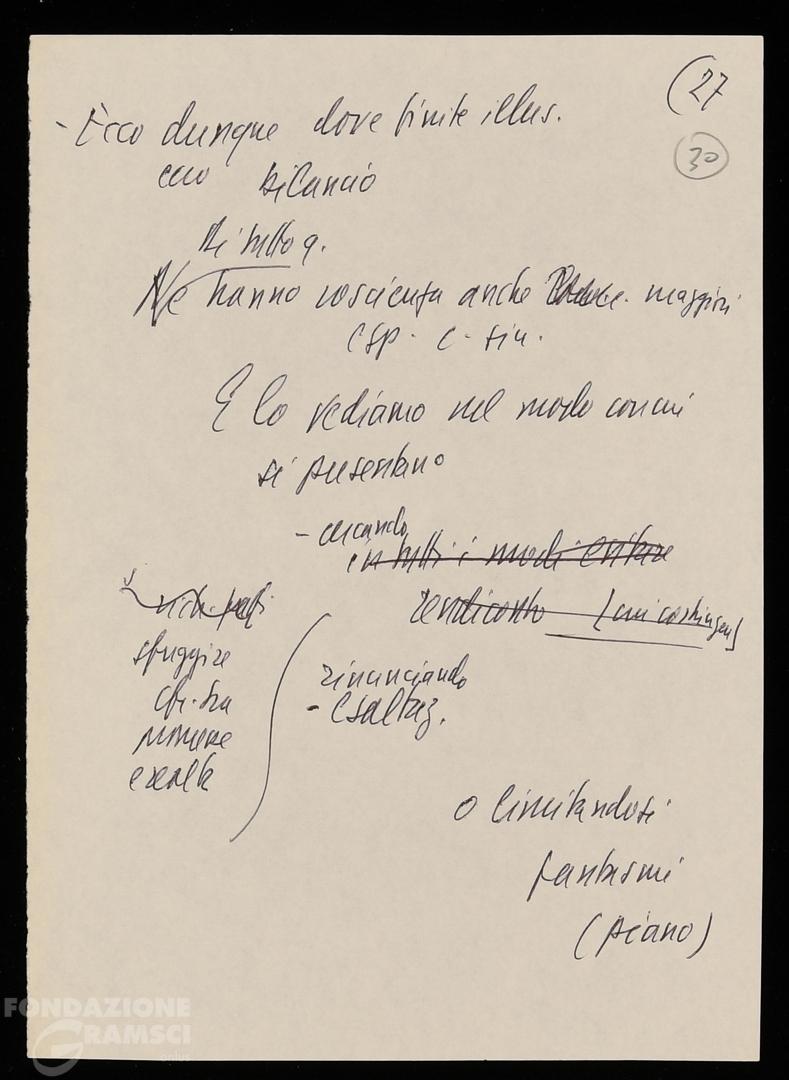 (27
30
- Ecco dunque dove finite illus.
ecco bilancio
di tutto q.
Ne hanno coscienza anche maggiori
esp. c-sin.
E lo vediamo nel modo con cui
si presentano
- cercando
in tutti i modi evitare
rendiconto
sfuggire
rinunciando
- Esaltaz.
o limitandosi
fantasmi
(piano)
FONDAZIONE
GRAMSCI
onlus